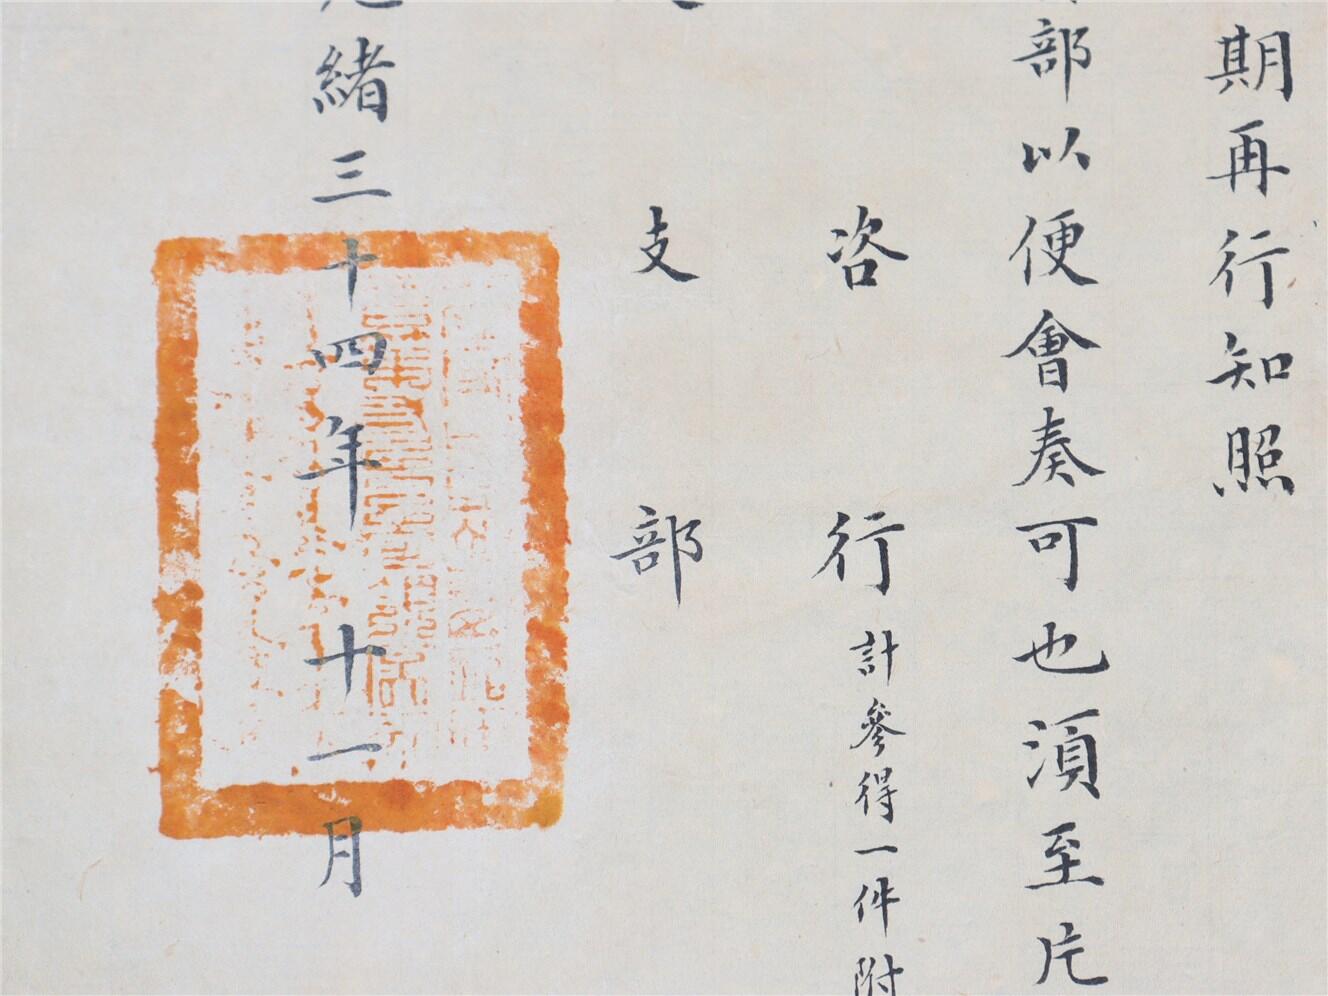 期再行知照
部以便會奏可也須至片
咨行計參得一件附
支部
緒三十四年十一月